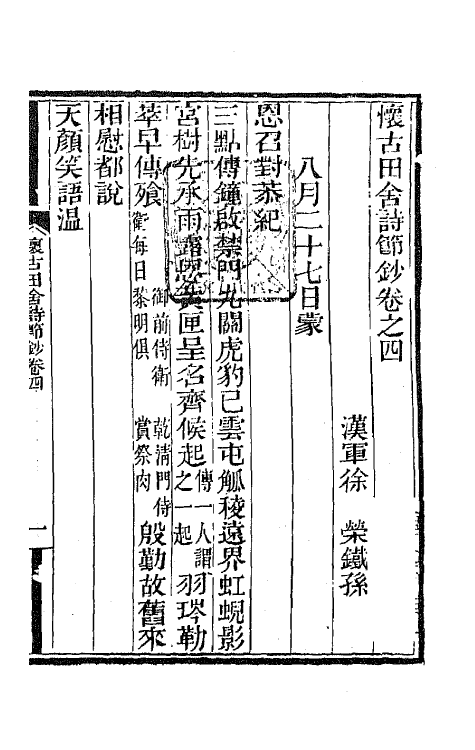 懷古田舍詩節鈔卷之四
漢軍徐 榮鐵孫
八月二十七日蒙
恩召對恭紀
三點傳鐘啟禁門九關虎豹已雲屯觚稜遠界虹蜺影
宮樹先承雨露恩黃匣呈名齊候起傳一人謂之一起羽琌勒
萃早傳飱御前侍衛 乾清門侍衛每日黎明俱 賞祭肉殷勤故舊來
相慰都說
天顏笑語溫
懷古田舍詩節鈔卷四 一